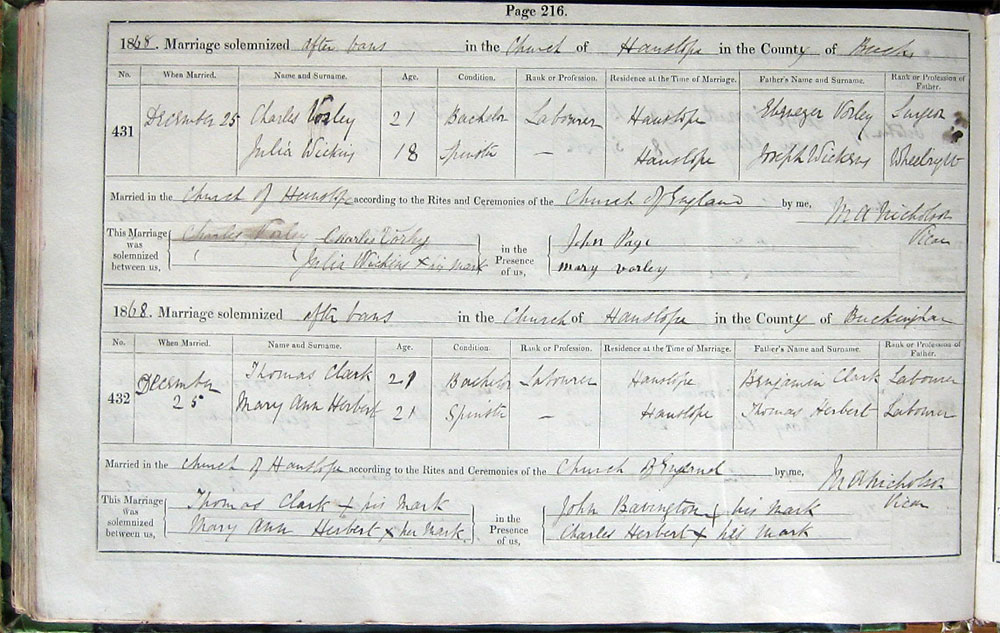 Page 216.
1868. Marriage solemnized after bans in the Church of Hanslope in the County of Bucks
No. When Married. Name and Surname. Age. Condition. Rank or Profession. Residence at the Time of Marriage. Father's Name and Surname. Rank or Profession of Father.
431 December 25 Charles Vorley 21 Bachelor Labourer Hanslope Ebenezer Vorley Sawyer
Julia Wickins 18 Spinster — Hanslope Joseph Wickens Wheelright
Married in the Church of Hanslope according to the Rites and Ceremonies of the Church of England by me, M A Nicholson
Vicar
This Marriage was solemnized between us, Charles Vorley Charles Vorley in the Presence of us, John Page
Julia Wickins x his mark mary vorley
1868. Marriage solemnized after bans in the Church of Hanslope in the County of Buckingham
No. When Married. Name and Surname. Age. Condition. Rank or Profession. Residence at the Time of Marriage. Father's Name and Surname. Rank or Profession of Father.
432 December 25 Thomas Clark 21 Bachelor Labourer Hanslope Benjamin Clark Labourer
Mary Ann Herbert 21 Spinster — Hanslope Thomas Herbert Labourer
Married in the Church of Hanslope according to the Rites and Ceremonies of the Church of England by me, M A Nicholson
Vicar
This Marriage was solemnized between us, Thomas Clark x his mark in the Presence of us, John Bavington x his mark
Mary Ann Herbert x her mark. Charles Herbert x his mark